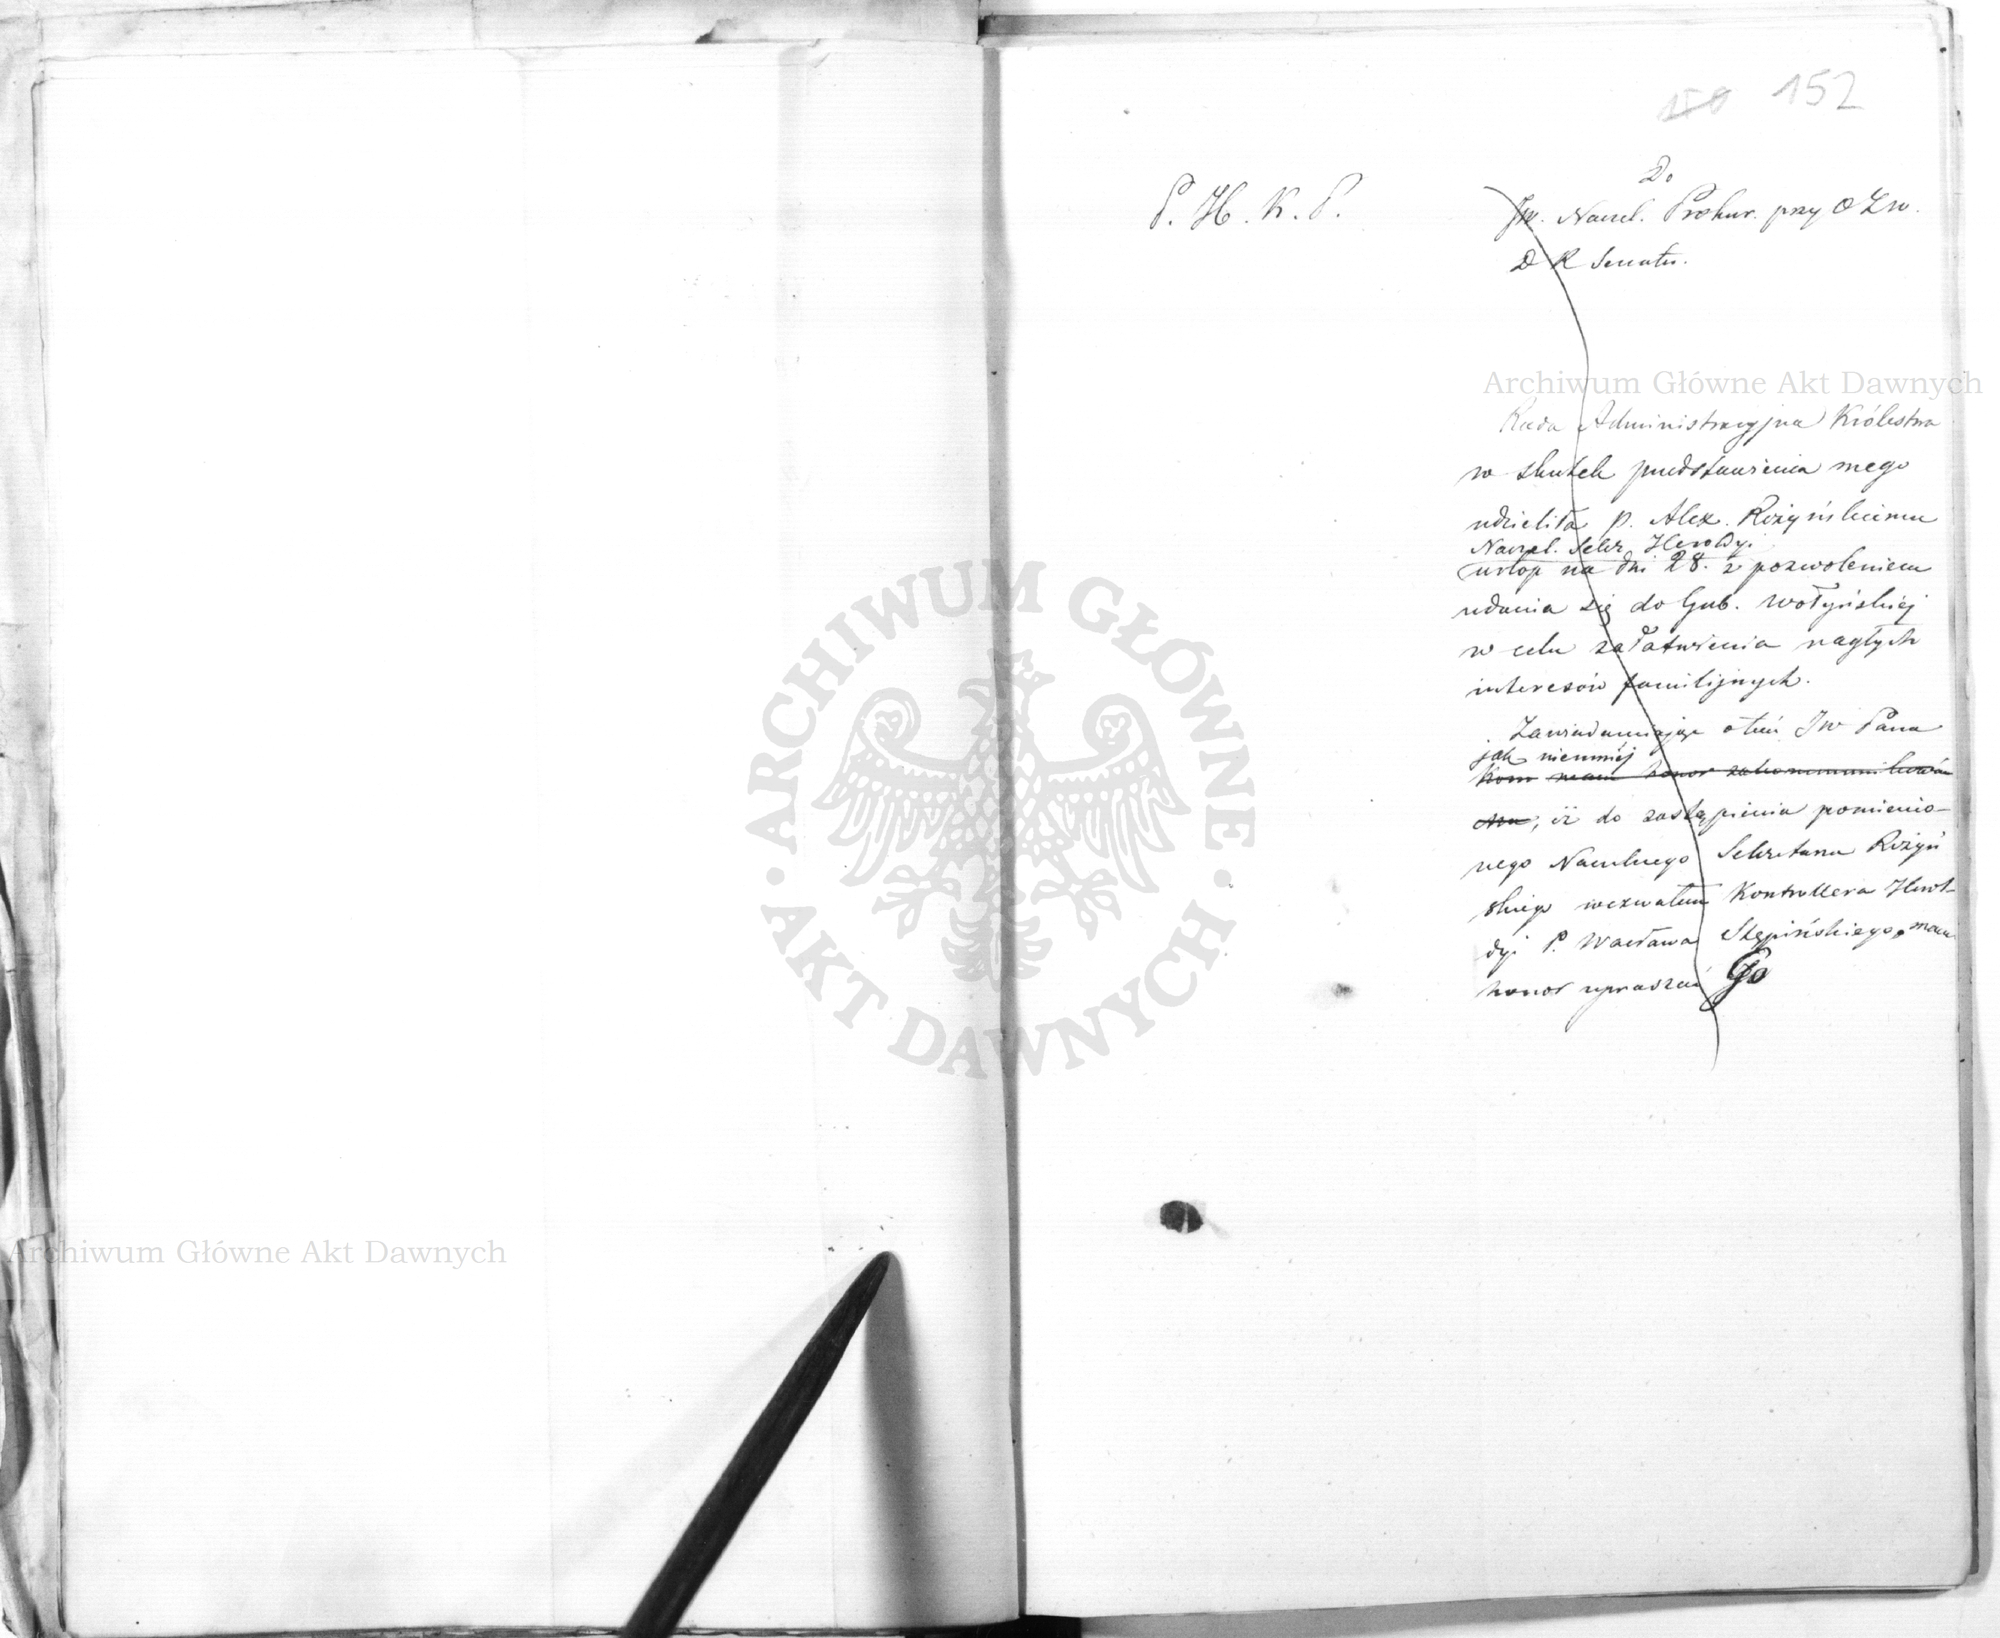 150 152
P. H. K. P.
Do
JW. Naczel. Prokur. przy O Zw.
D R Senatu.
Archiwum Główne Akt Dawnych
Rada Administracyjna Królestwa
w skutek przedstawienia mego
udzieliła P. Alex. Różyńskiemu
Naczel. Sekr. Heroldyi
urlop na dni 28. z pozwoleniem
udania się do Gub. Wołyńskiej
w celu załatwienia nagłych
interesów familijnych.
Zawiadamiając o tém JW Pana
jak niemniéj
mam honor zakommunikować
, iż do zastąpienia pomienio-
nego Naczelnego Sekretarza Różyń
skiego wezwałem Kontrollera Herol-
dyi P. Wacława Stępińskiego, mam
honor upraszać Go
ARCHIWUM GŁÓWNE
AKT DAWNYCH
Archiwum Główne Akt Dawnych